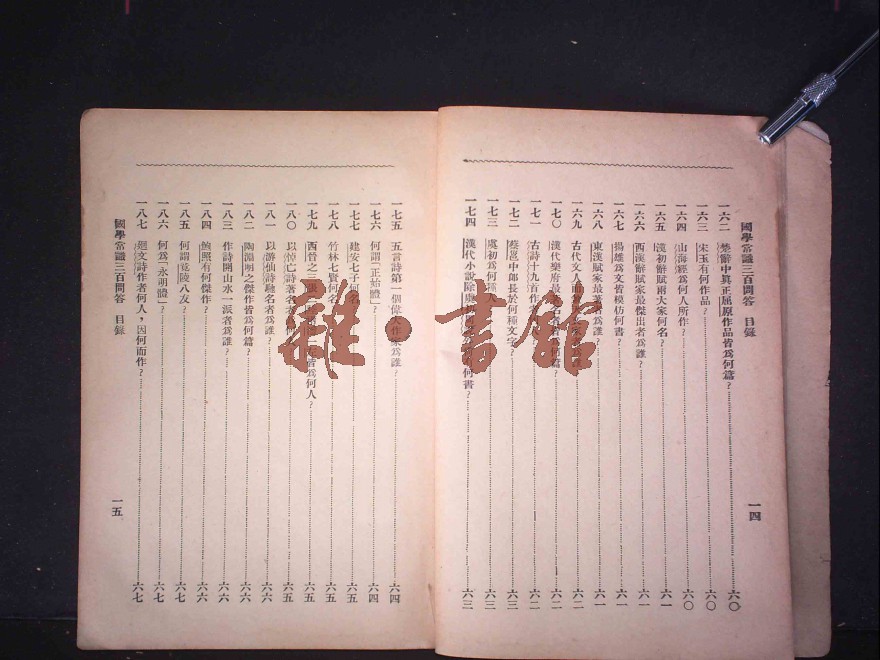 國學常識三百問答 目錄
一四
一六二 楚辭中眞正屈原作品皆爲何篇?六〇
一六三 宋玉有何作品?六〇
一六四 山海經爲何人所作?六〇
一六五 漢初辭賦兩大家何名?六一
一六六 西漢辭賦家最傑出者爲誰?六一
一六七 揚雄爲文皆模仿何書?六一
一六八 東漢賦家最著者爲誰?六一
一六九 古代文人
一七〇 漢代樂府最
一七一 古詩十九首作
一七二 蔡邕中郞長於何種文字?六二
一七三 虞初爲何
一七四 漢代小說除虞
何書?六三
一七五 五言詩第一個偉大作家爲誰?六四
一七六 何謂「正始體」?六四
一七七 建安七子何名
一七八 竹林七賢何名
一七九 西晉之三張
皆爲何人?六五
一八〇 以悼亡詩著名者
一八一 以游仙詩馳名者爲誰?六六
一八二 陶淵明之傑作皆爲何篇?六六
一八三 作詩開山水一派者爲誰?六六
一八四 鮑照有何傑作?六六
一八五 何謂竟陵八友?六七
一八六 何爲「永明體」?六七
一八七 迴文詩作者何人,因何而作?六七
國學常識三百問答 目錄
一五
雜·書館